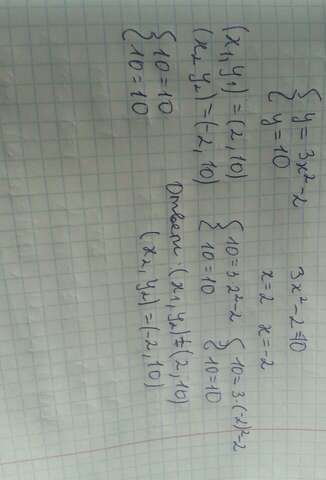 { y = 3x²-2
{ y = 10
3x²-2=10
x=2 x=-2
(x₁, y₁) = (2, 10)
(x₂, y₂) = (-2, 10)
{ 10=3·2²-2
{ 10=10
{ 10=3·(-2)²-2
{ 10=10
{ 10=10
{ 10=10
Ответ: (x₁, y₂)=(2, 10)
(x₂, y₂)=(-2, 10)